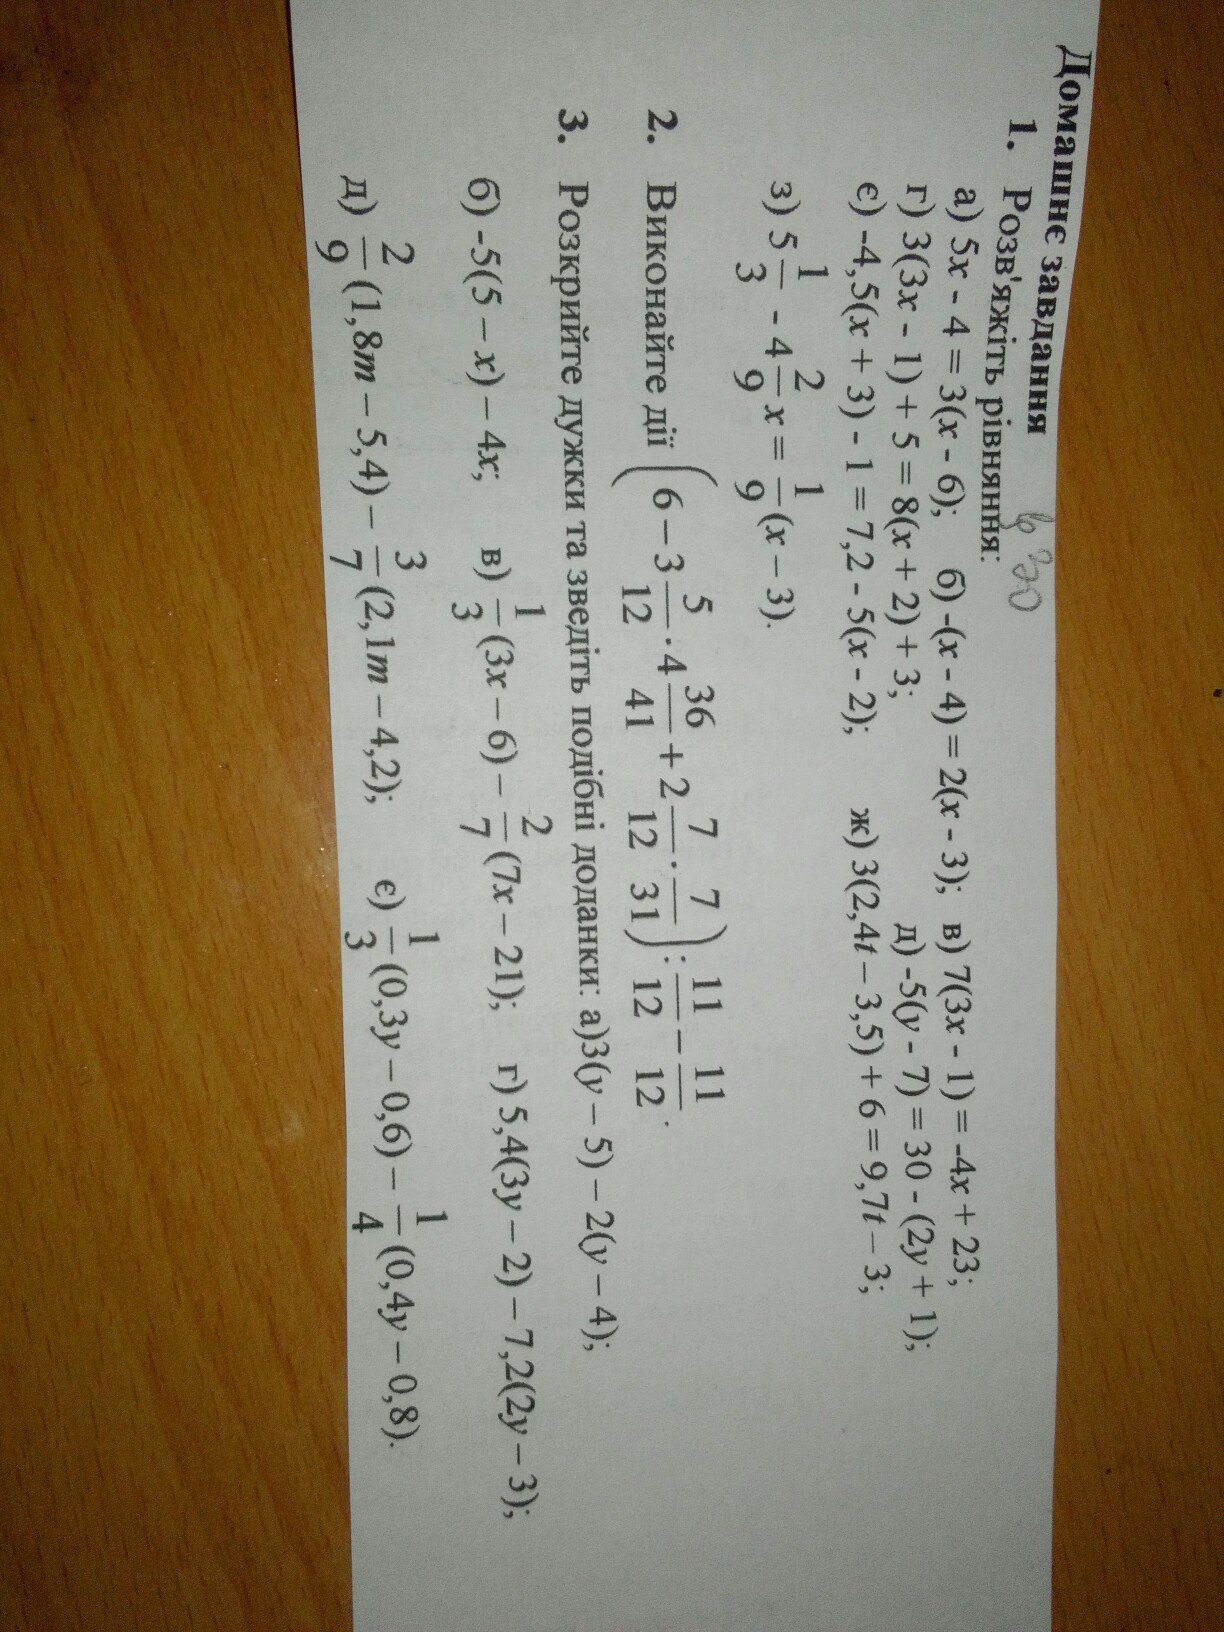 Домашнє завдання
1. Розв'яжіть рівняння:
а) 5x - 4 = 3(x - 6); б) -(x - 4) = 2(x - 3); в) 7(3x - 1) = -4x + 23;
г) 3(3x - 1) + 5 = 8(x + 2) + 3; д) -5(y - 7) = 30 - (2y + 1);
є) -4,5(x + 3) - 1 = 7,2 - 5(x - 2); ж) 3(2,4t – 3,5) + 6 = 9,7t – 3;
з) 5 1/3 - 4 2/9 x = 1/9 (x – 3).
2. Виконайте дії (6 – 3 5/12 · 4 36/41 + 2 7/12 · 7/31) : 11/12 – 11/12.
3. Розкрийте дужки та зведіть подібні доданки: а)3(y – 5) – 2(y – 4);
б) -5(5 – x) – 4x; в) 1/3 (3x – 6) – 2/7 (7x – 21); г) 5,4(3y – 2) – 7,2(2y – 3);
д) 2/9 (1,8m – 5,4) – 3/7 (2,1m – 4,2); є) 1/3 (0,3y – 0,6) – 1/4 (0,4y – 0,8).